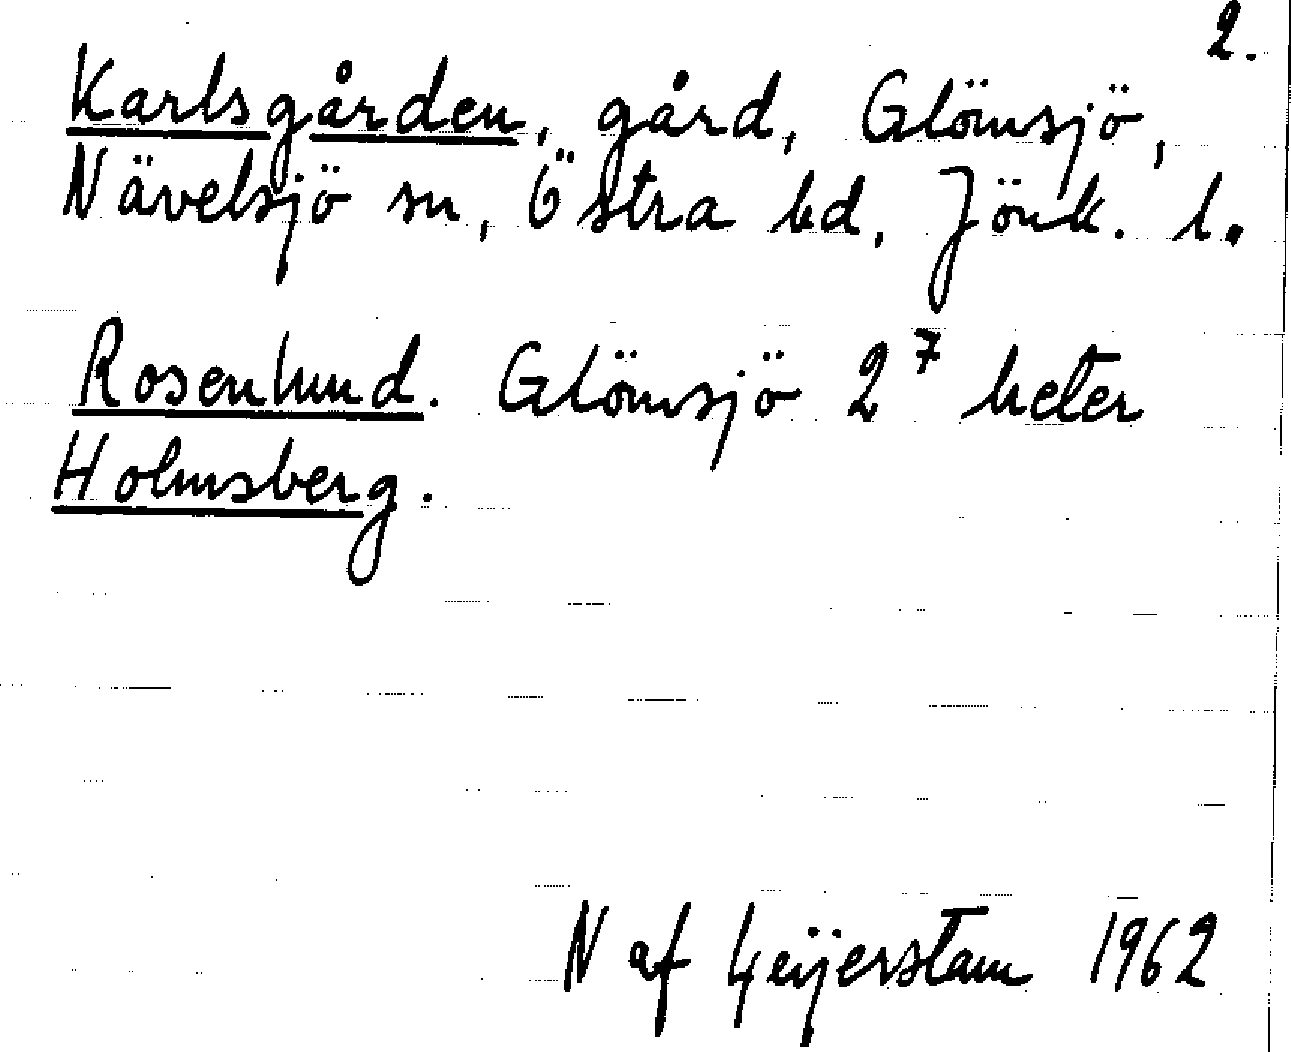 2.
Karlsgården, gård, Glömsjö,
Nävelsjö sn, Östra hd, Jönk. l.
Rosenlund. Glömsjö 2⁷ heter
Holmsberg.
N af Geijerstam 1962